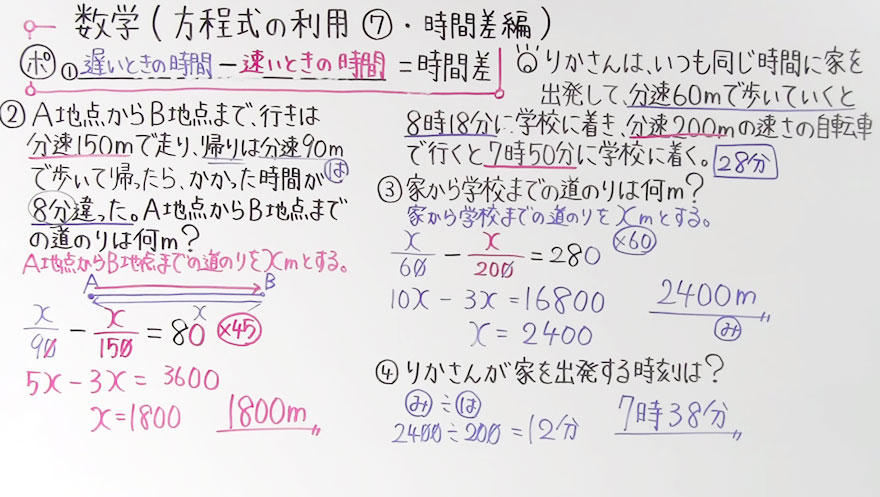 数学(方程式の利用⑦・時間差編)
ポ ①遅いときの時間－速いときの時間＝時間差
②A地点からB地点まで、行きは
分速150mで走り、帰りは分速90m
で歩いて帰ったら、かかった時間が は
8分違った。A地点からB地点まで
の道のりは何m?
A地点からB地点までの道のりをxmとする。
A B
x
x/90 － x/150 = 80 ×45
5x－3x = 3600
x=1800 1800m
りかさんは、いつも同じ時間に家を
出発して、分速60mで歩いていくと
8時18分に学校に着き、分速200mの速さの自転車
で行くと7時50分に学校に着く。 28分
③家から学校までの道のりは何m?
家から学校までの道のりをxmとする。
x/60 － x/200 = 280 ×60
10x－3x = 16800 2400m
x = 2400 み
④りかさんが家を出発する時刻は?
み÷は
2400÷200=12分 7時38分